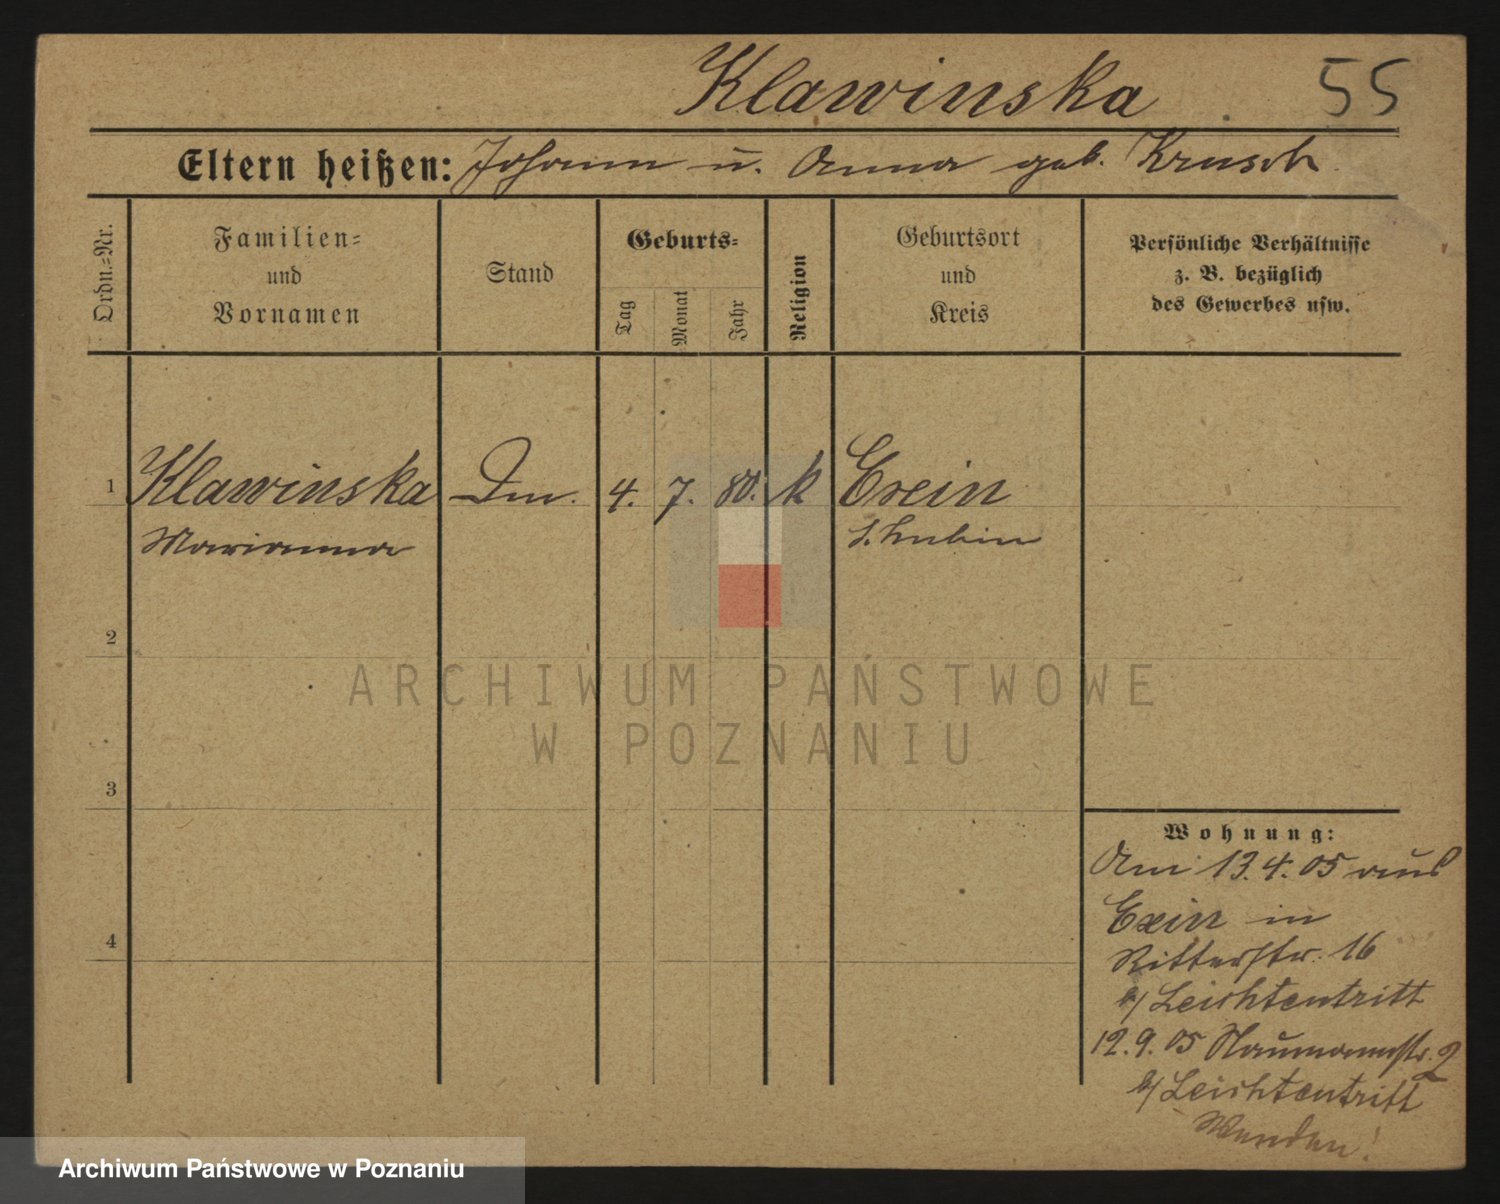 Klawinska 55
Eltern heißen: Johann u. Anna geb. Krusch
Ordn.-Nr.
Familien-
und
Vornamen
Stand
Geburts-
Tag
Monat
Jahr
Religion
Geburtsort
und
Kreis
Persönliche Verhältnisse
z. B. bezüglich
des Gewerbes usw.
1 Klawinska Dm. 4. 7. 80. k Exin
Marianna Schubin
2
3
4
Wohnung:
Am 13.4.05 aus
Exin in
Ritterstr. 16
b/ Leichtentritt
12.9.05 Naumannstr. 2
b/ Leichtentritt
Wenden!
ARCHIWUM PAŃSTWOWE
W POZNANIU
Archiwum Państwowe w Poznaniu